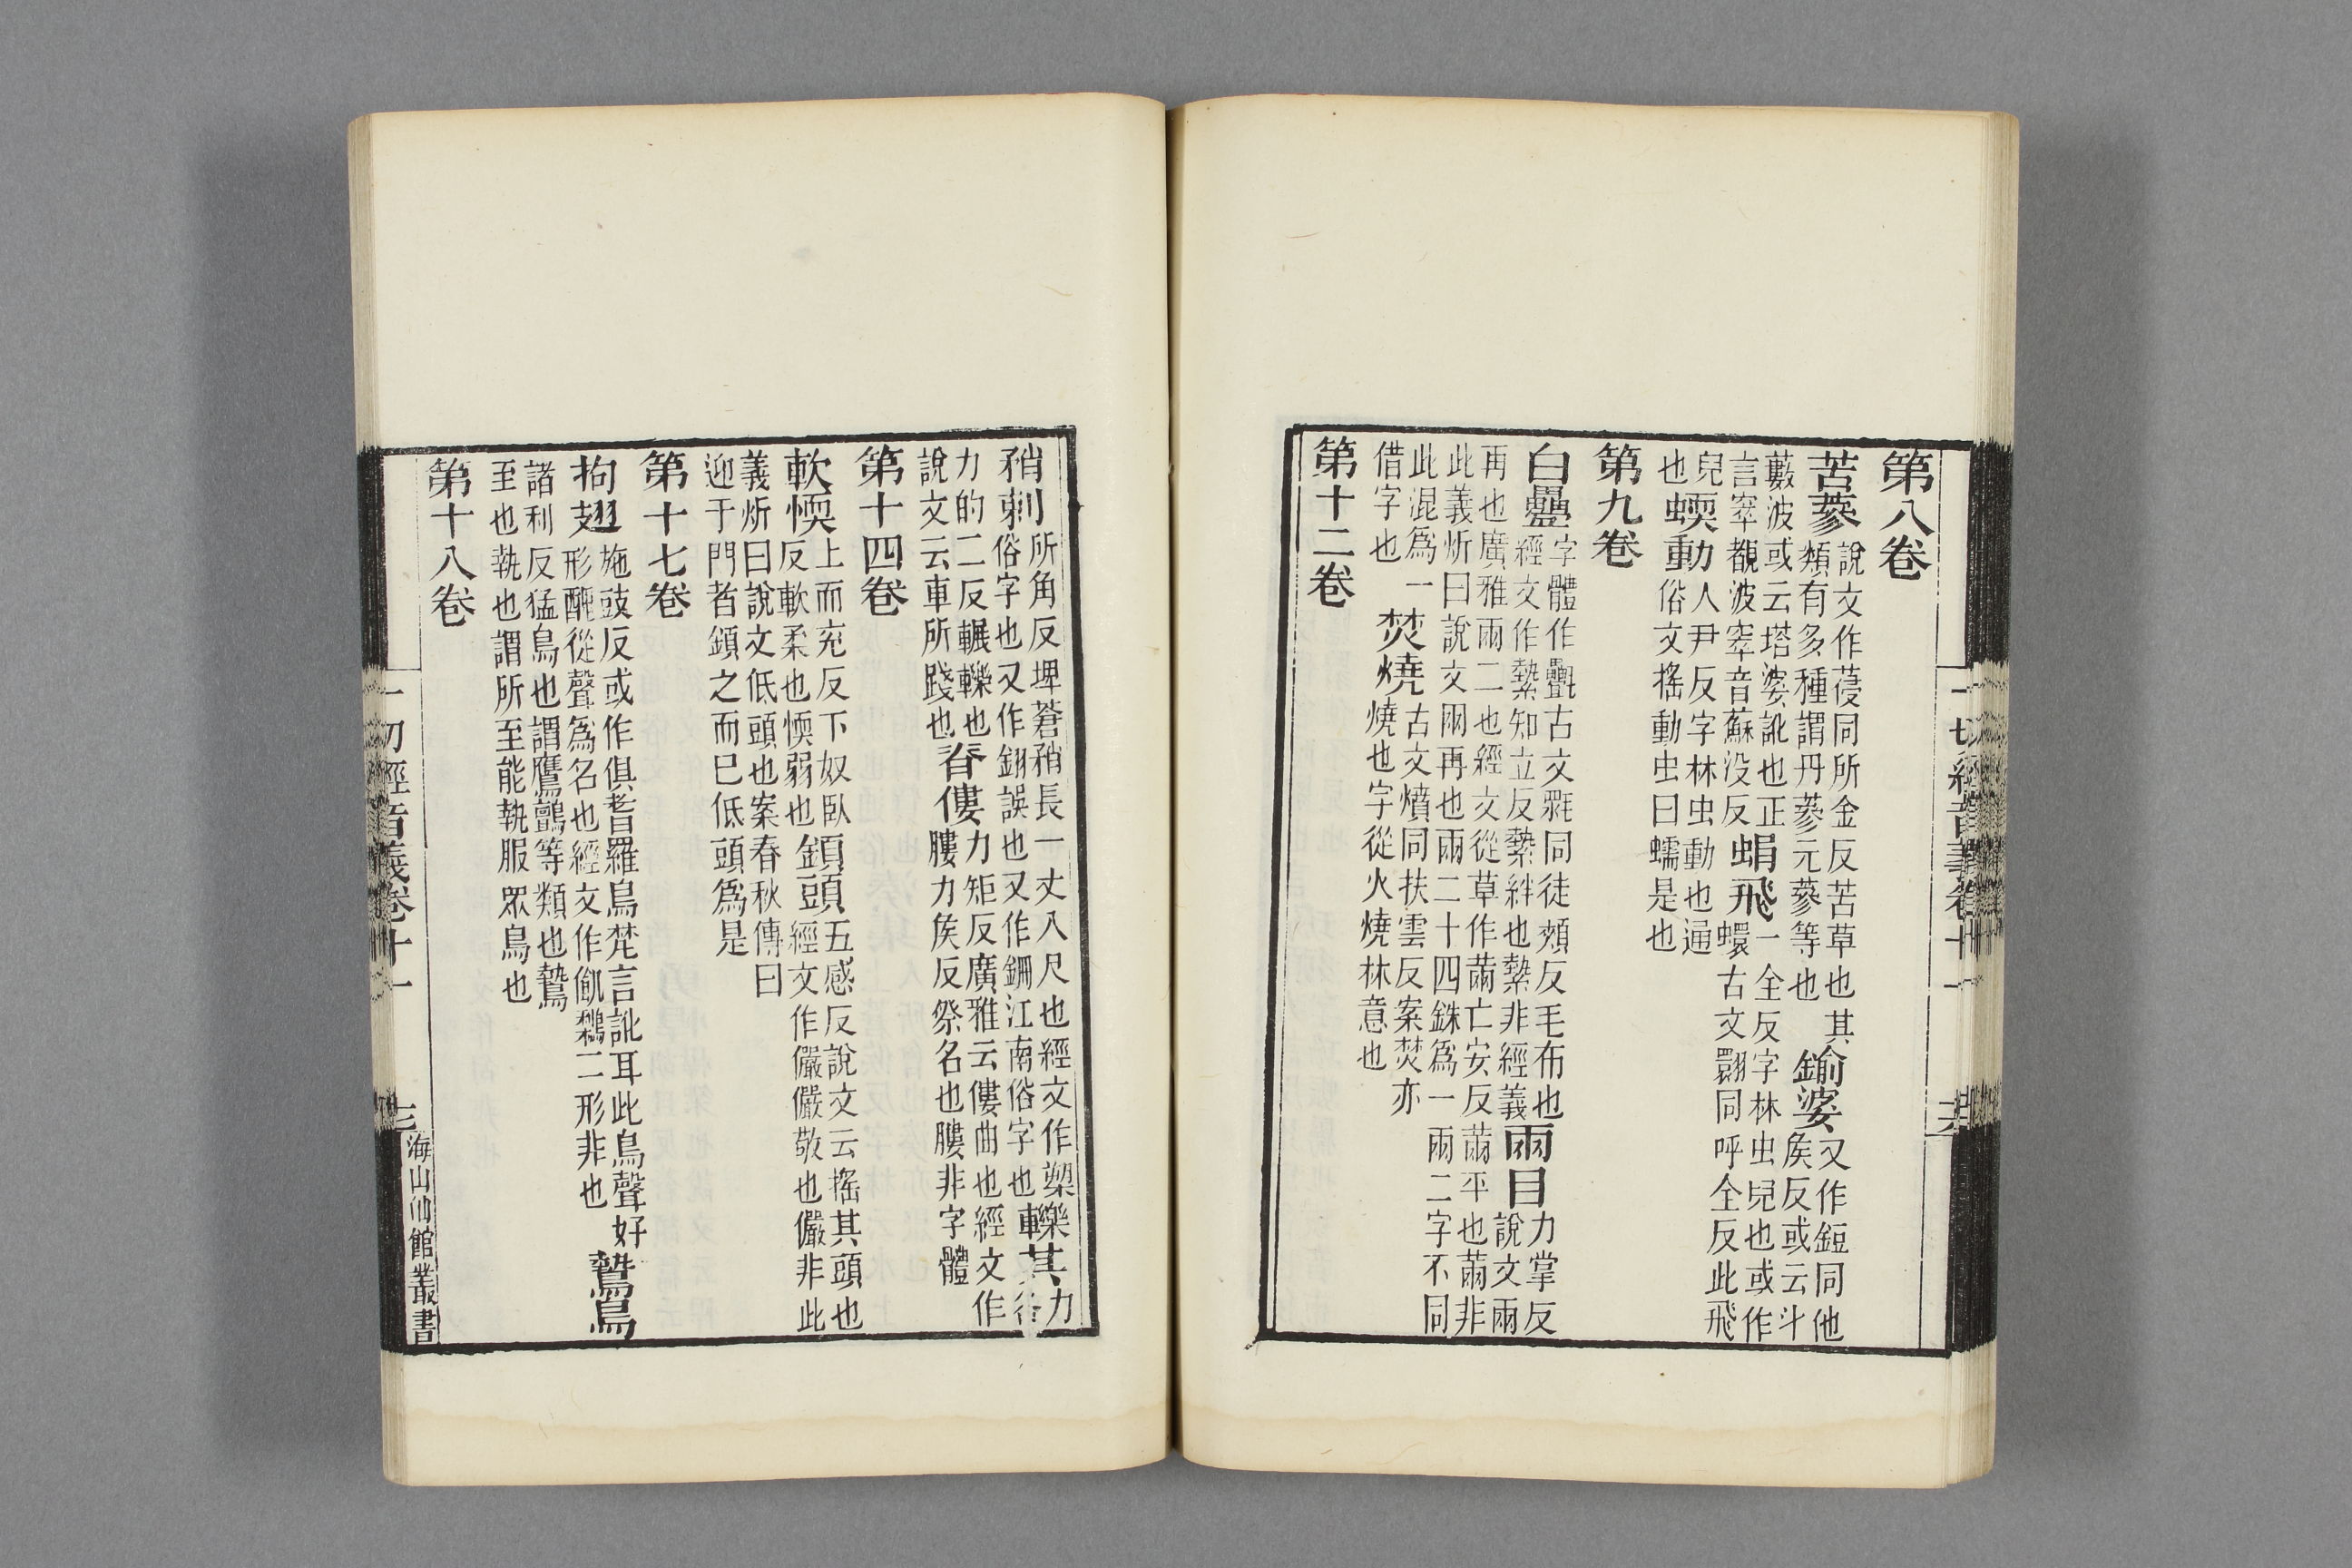 第八卷
苦蔘說文作蓡同所金反苦草也其
類有多種謂丹蔘元蔘等也鍮婆又作鋀同他
矦反或云斗
藪波或云塔婆訛也正
言窣覩波窣音蘇没反蜎飛一全反字林虫皃也或作
蠉古文翾同呼全反此飛
皃蝡動人尹反字林虫動也通
也俗文搖動虫曰蠕是也
第九卷
白㲲字體作㲲古文㲲同徒頰反毛布也
經文作縶知立反縶絆也縶非經義㒳目力掌反
說文㒳
再也廣雅㒳二也經文從草作䓣亡安反䓣平也䓣非
此義炘曰說文㒳再也兩二十四銖爲一兩二字不同
此混爲一
借字也焚燒古文燌同扶雲反案焚亦
燒也字從火燒林意也
第十二卷
矟刺所角反埤蒼矟長一丈八尺也經文作槊
俗字也又作鎙誤也又作鎙江南俗字也轢其力
力的二反輾轢也
說文云車所踐也脊僂力矩反廣雅云僂曲也經文作
膢力矦反祭名也膢非字體
第十四卷
軟愞上而兖反下奴臥
反軟柔也愞弱也顉頭五感反說文云搖其頭也
經文作儼儼敬也儼非此
義炘曰說文低頭也案春秋傳曰
迎于門者顉之而巳低頭爲是
第十七卷
拘翅施豉反或作俱耆羅鳥梵言訛耳此鳥聲好
形醜從聲爲名也經文作㲲鶖二形非也鷙鳥
諸利反猛鳥也謂鷹鸇等類也鷙
至也執也謂所至能執服眾鳥也
第十八卷
一切經音義卷十一
一切經音義卷十一
海山仙館叢書